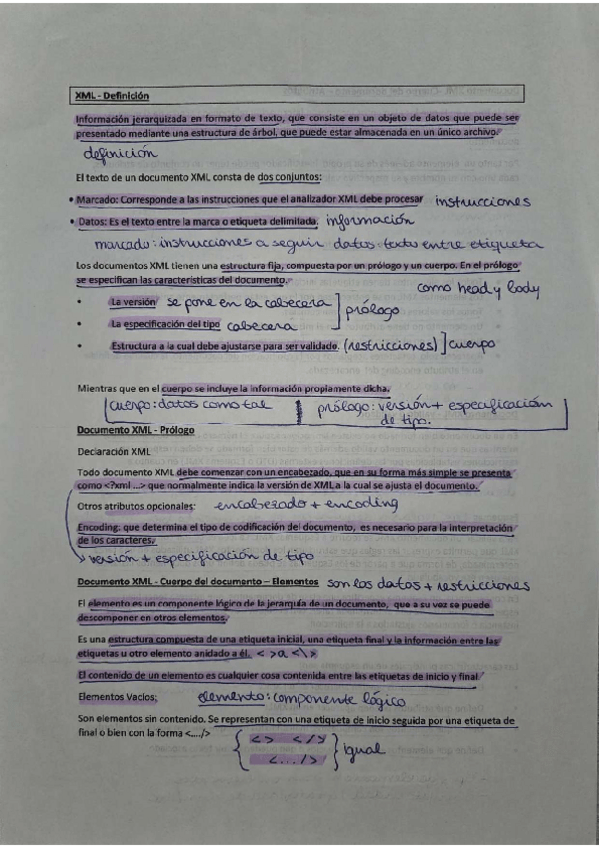 XML - Definición
Información jerarquizada en formato de texto, que consiste en un objeto de datos que puede ser
presentado mediante una estructura de árbol, que puede estar almacenada en un único archivo.
definición
El texto de un documento XML consta de dos conjuntos:
• Marcado: Corresponde a las instrucciones que el analizador XML debe procesar instrucciones
• Datos: Es el texto entre la marca o etiqueta delimitada. información
marcado: instrucciones a seguir datos: texto entre etiqueta
Los documentos XML tienen una estructura fija, compuesta por un prólogo y un cuerpo. En el prólogo
se especifican las características del documento.
como head y body
• La versión se pone en la cabecera
prólogo
• La especificación del tipo cabecera
• Estructura a la cual debe ajustarse para ser validado. (restricciones) ] cuerpo
Mientras que en el cuerpo se incluye la información propiamente dicha.
cuerpo: datos como tal prólogo: versión + especificación
de tipo.
Documento XML - Prólogo
Declaración XML
Todo documento XML debe comenzar con un encabezado, que en su forma más simple se presenta
como <?xml ...> que normalmente indica la versión de XML a la cual se ajusta el documento.
Otros atributos opcionales: encabezado + encoding
Encoding: que determina el tipo de codificación del documento, es necesario para la interpretación
de los caracteres.
versión + especificación de tipo
Documento XML - Cuerpo del documento – Elementos son los datos + restricciones
El elemento es un componente lógico de la jerarquía de un documento, que a su vez se puede
descomponer en otros elementos.
Es una estructura compuesta de una etiqueta inicial, una etiqueta final y la información entre las
etiquetas u otro elemento anidado a él. < >a <\>
El contenido de un elemento es cualquier cosa contenida entre las etiquetas de inicio y final.
Elementos Vacíos: elemento: componente lógico
Son elementos sin contenido. Se representan con una etiqueta de inicio seguida por una etiqueta de
final o bien con la forma <..../>
{ <> </>
igual
<.../>